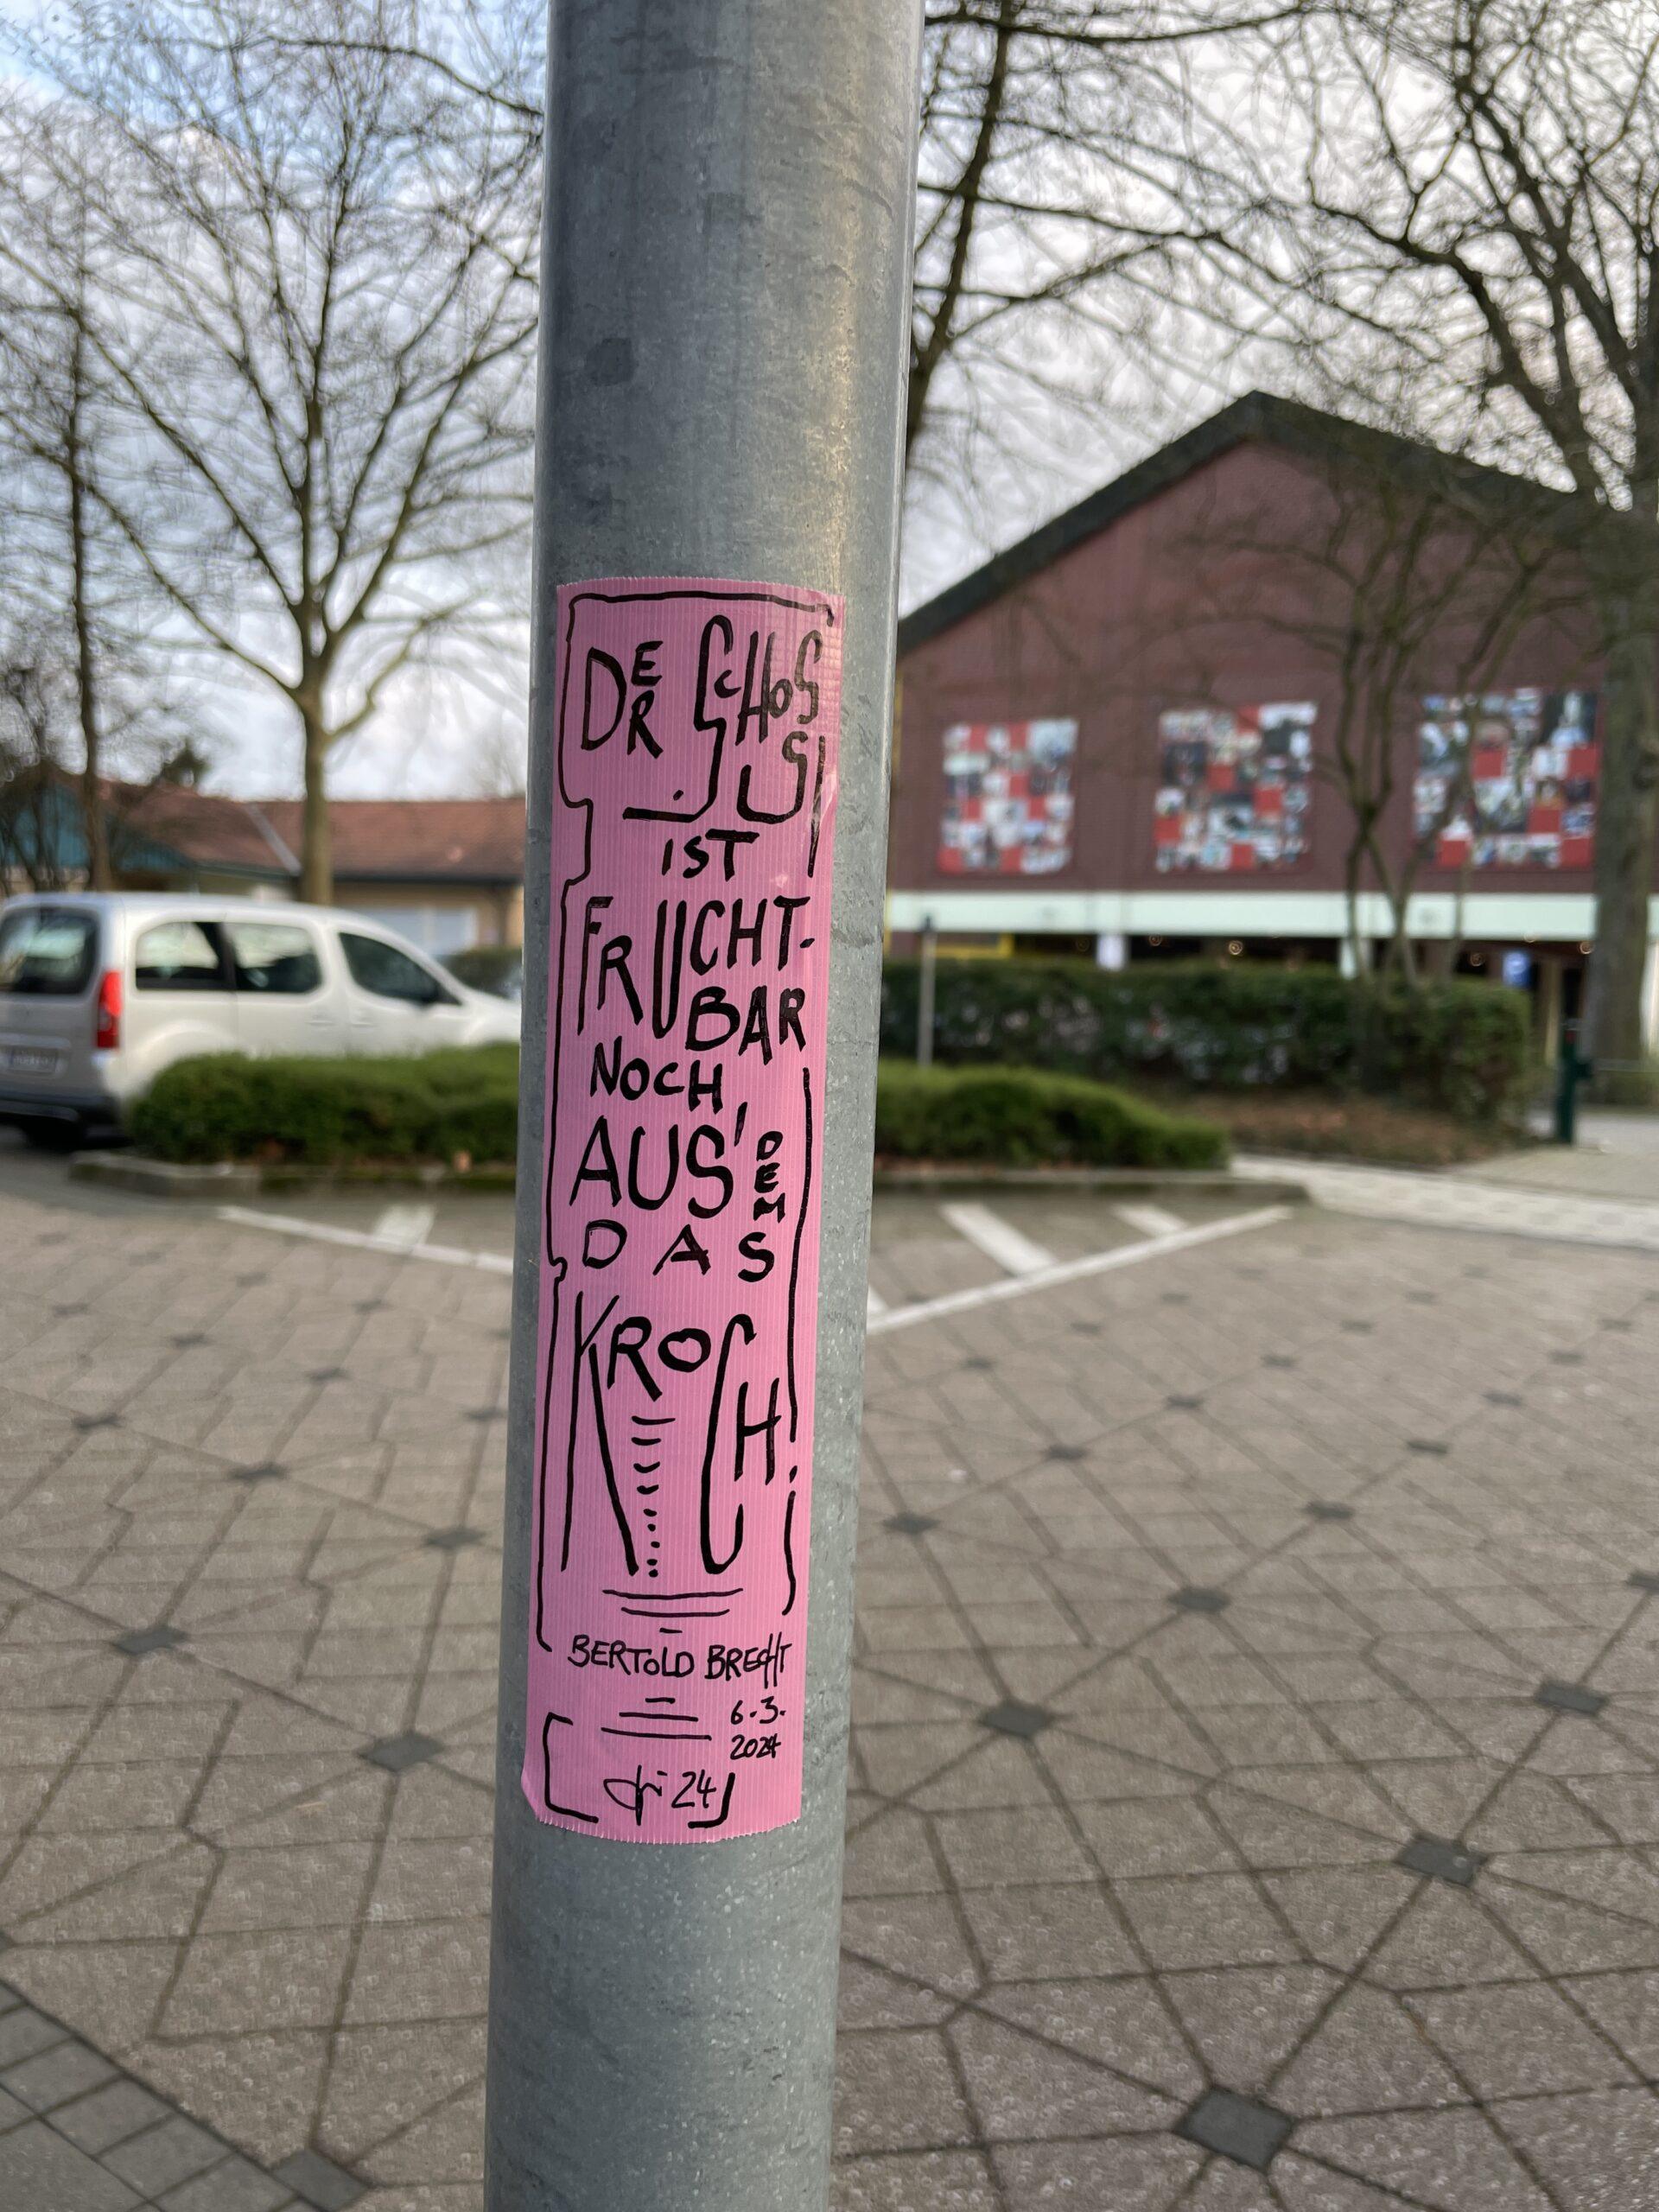 DER SCHOS
S
IST
FRUCHT-
BAR
NOCH,
AUS' DEM
DAS
KROCH!
BERTOLD BRECHT
6.3.
2024
24